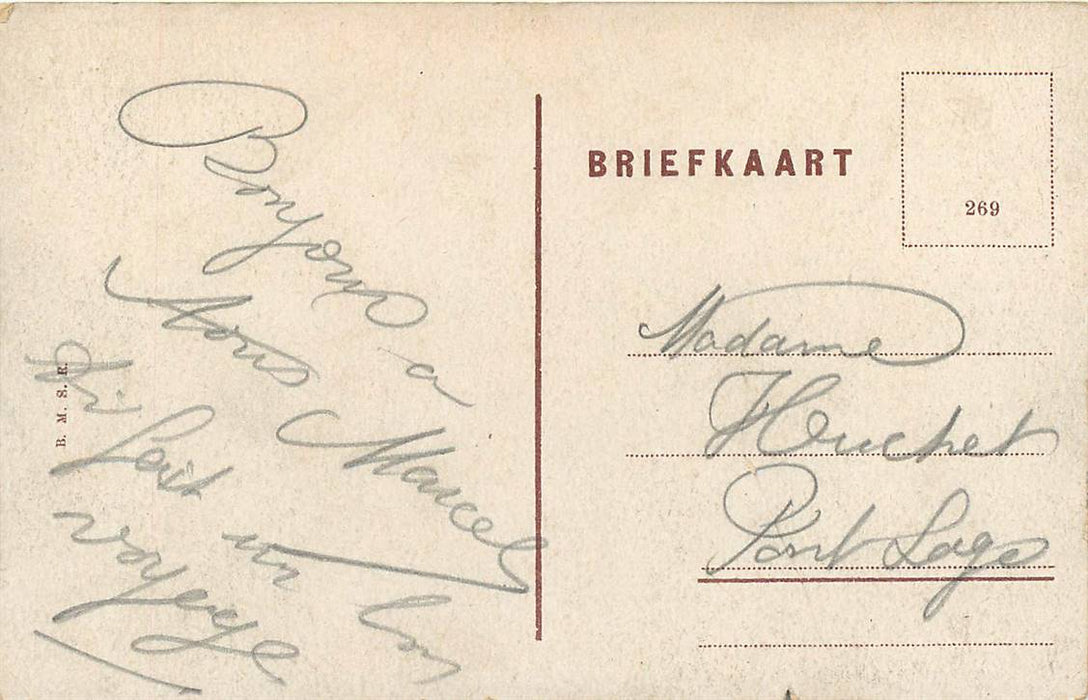 Bonjour a
Tous Marcel
ai fait un bon
voyage
B. M. S. R.
BRIEFKAART
269
Madame
Huchet
Pont Lage